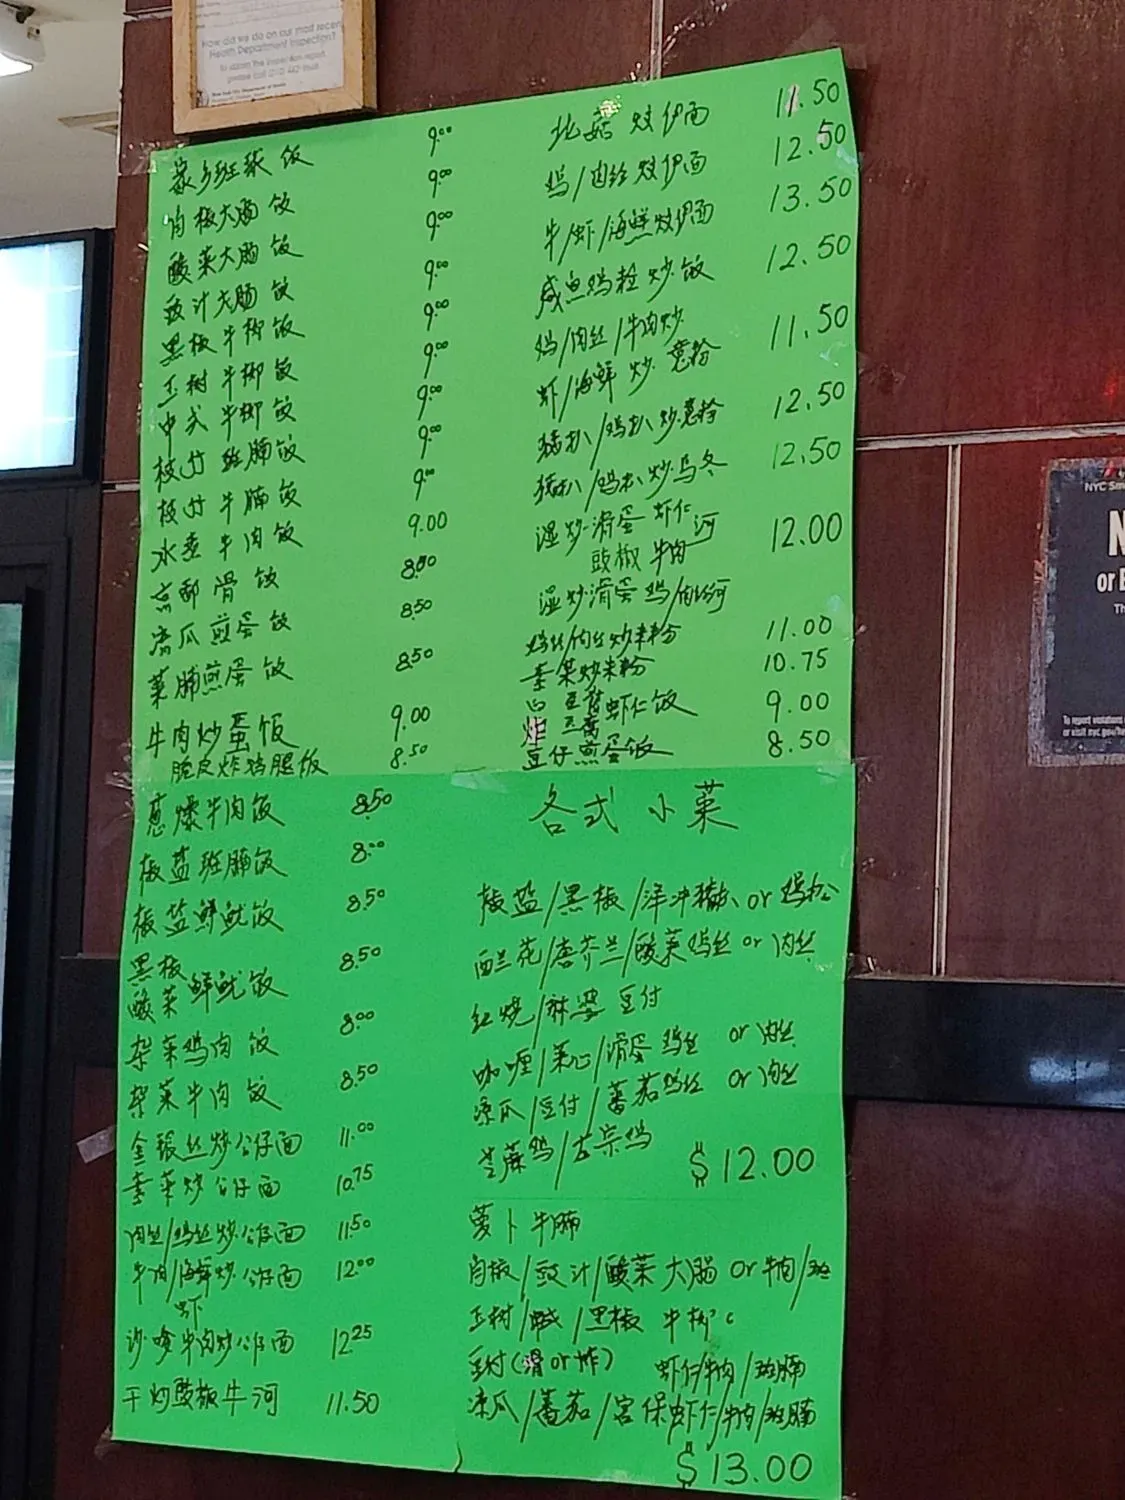 How did we do on our most recent
Health Department Inspection?
饭 9.00
大肠饭 9.00
酸菜大肠饭 9.00
豉汁大肠饭 9.00
黑椒牛柳饭 9.00
玉树牛柳饭 9.00
中式牛柳饭 9.00
枝竹班腩饭 9.00
枝竹牛腩饭 9.00
水煮牛肉饭 9.00
京都骨饭 8.50
凉瓜煎蛋饭 8.50
菜脯煎蛋饭 8.50
牛肉炒蛋饭 9.00
脆皮炸鸡腿饭 8.50
葱爆牛肉饭 8.50
椒盐班腩饭 8.00
椒盐鲜鱿饭 8.50
黑椒
酸菜鲜鱿饭 8.50
杂菜鸡肉饭 8.00
杂菜牛肉饭 8.50
金银丝炒公仔面 11.00
素菜炒公仔面 10.75
肉丝/鸡丝炒公仔面 11.50
牛肉/海鲜炒公仔面 12.00
虾
沙嗲牛肉炒公仔面 12.25
干炒豉椒牛河 11.50
北菇炆伊面 11.50
鸡/肉丝炆伊面 12.50
牛/虾/海鲜炆伊面 13.50
咸鱼鸡粒炒饭 12.50
鸡/肉丝/牛肉炒
虾/海鲜炒意粉 11.50
猪扒/鸡扒炒意粉 12.50
猪扒/鸡扒炒乌冬 12.50
湿炒滑蛋虾仁河
豉椒牛肉 12.00
湿炒滑蛋鸡/肉丝河
鸡丝/肉丝炒米粉 11.00
素菜炒米粉 10.75
白豆腐虾仁饭 9.00
炸豆腐
豆仔煎蛋饭 8.50
各式小菜
椒盐/黑椒/洋葱猪扒 or 鸡扒
西兰花/唐芥兰/酸菜鸡丝 or 肉丝
红烧/麻婆豆付
咖喱/菜心/滑蛋鸡丝 or 肉丝
凉瓜/豆付/蕃茄鸡丝 or 肉丝
芝麻鸡/左宗鸡
$12.00
萝卜牛腩
豉汁/酸菜大肠 or 牛肉/班
玉树/黑椒牛柳
豆付(滑or炸) 虾仁/牛肉/班腩
凉瓜/蕃茄/宫保虾仁/牛肉/班腩
$13.00
NYC
or E